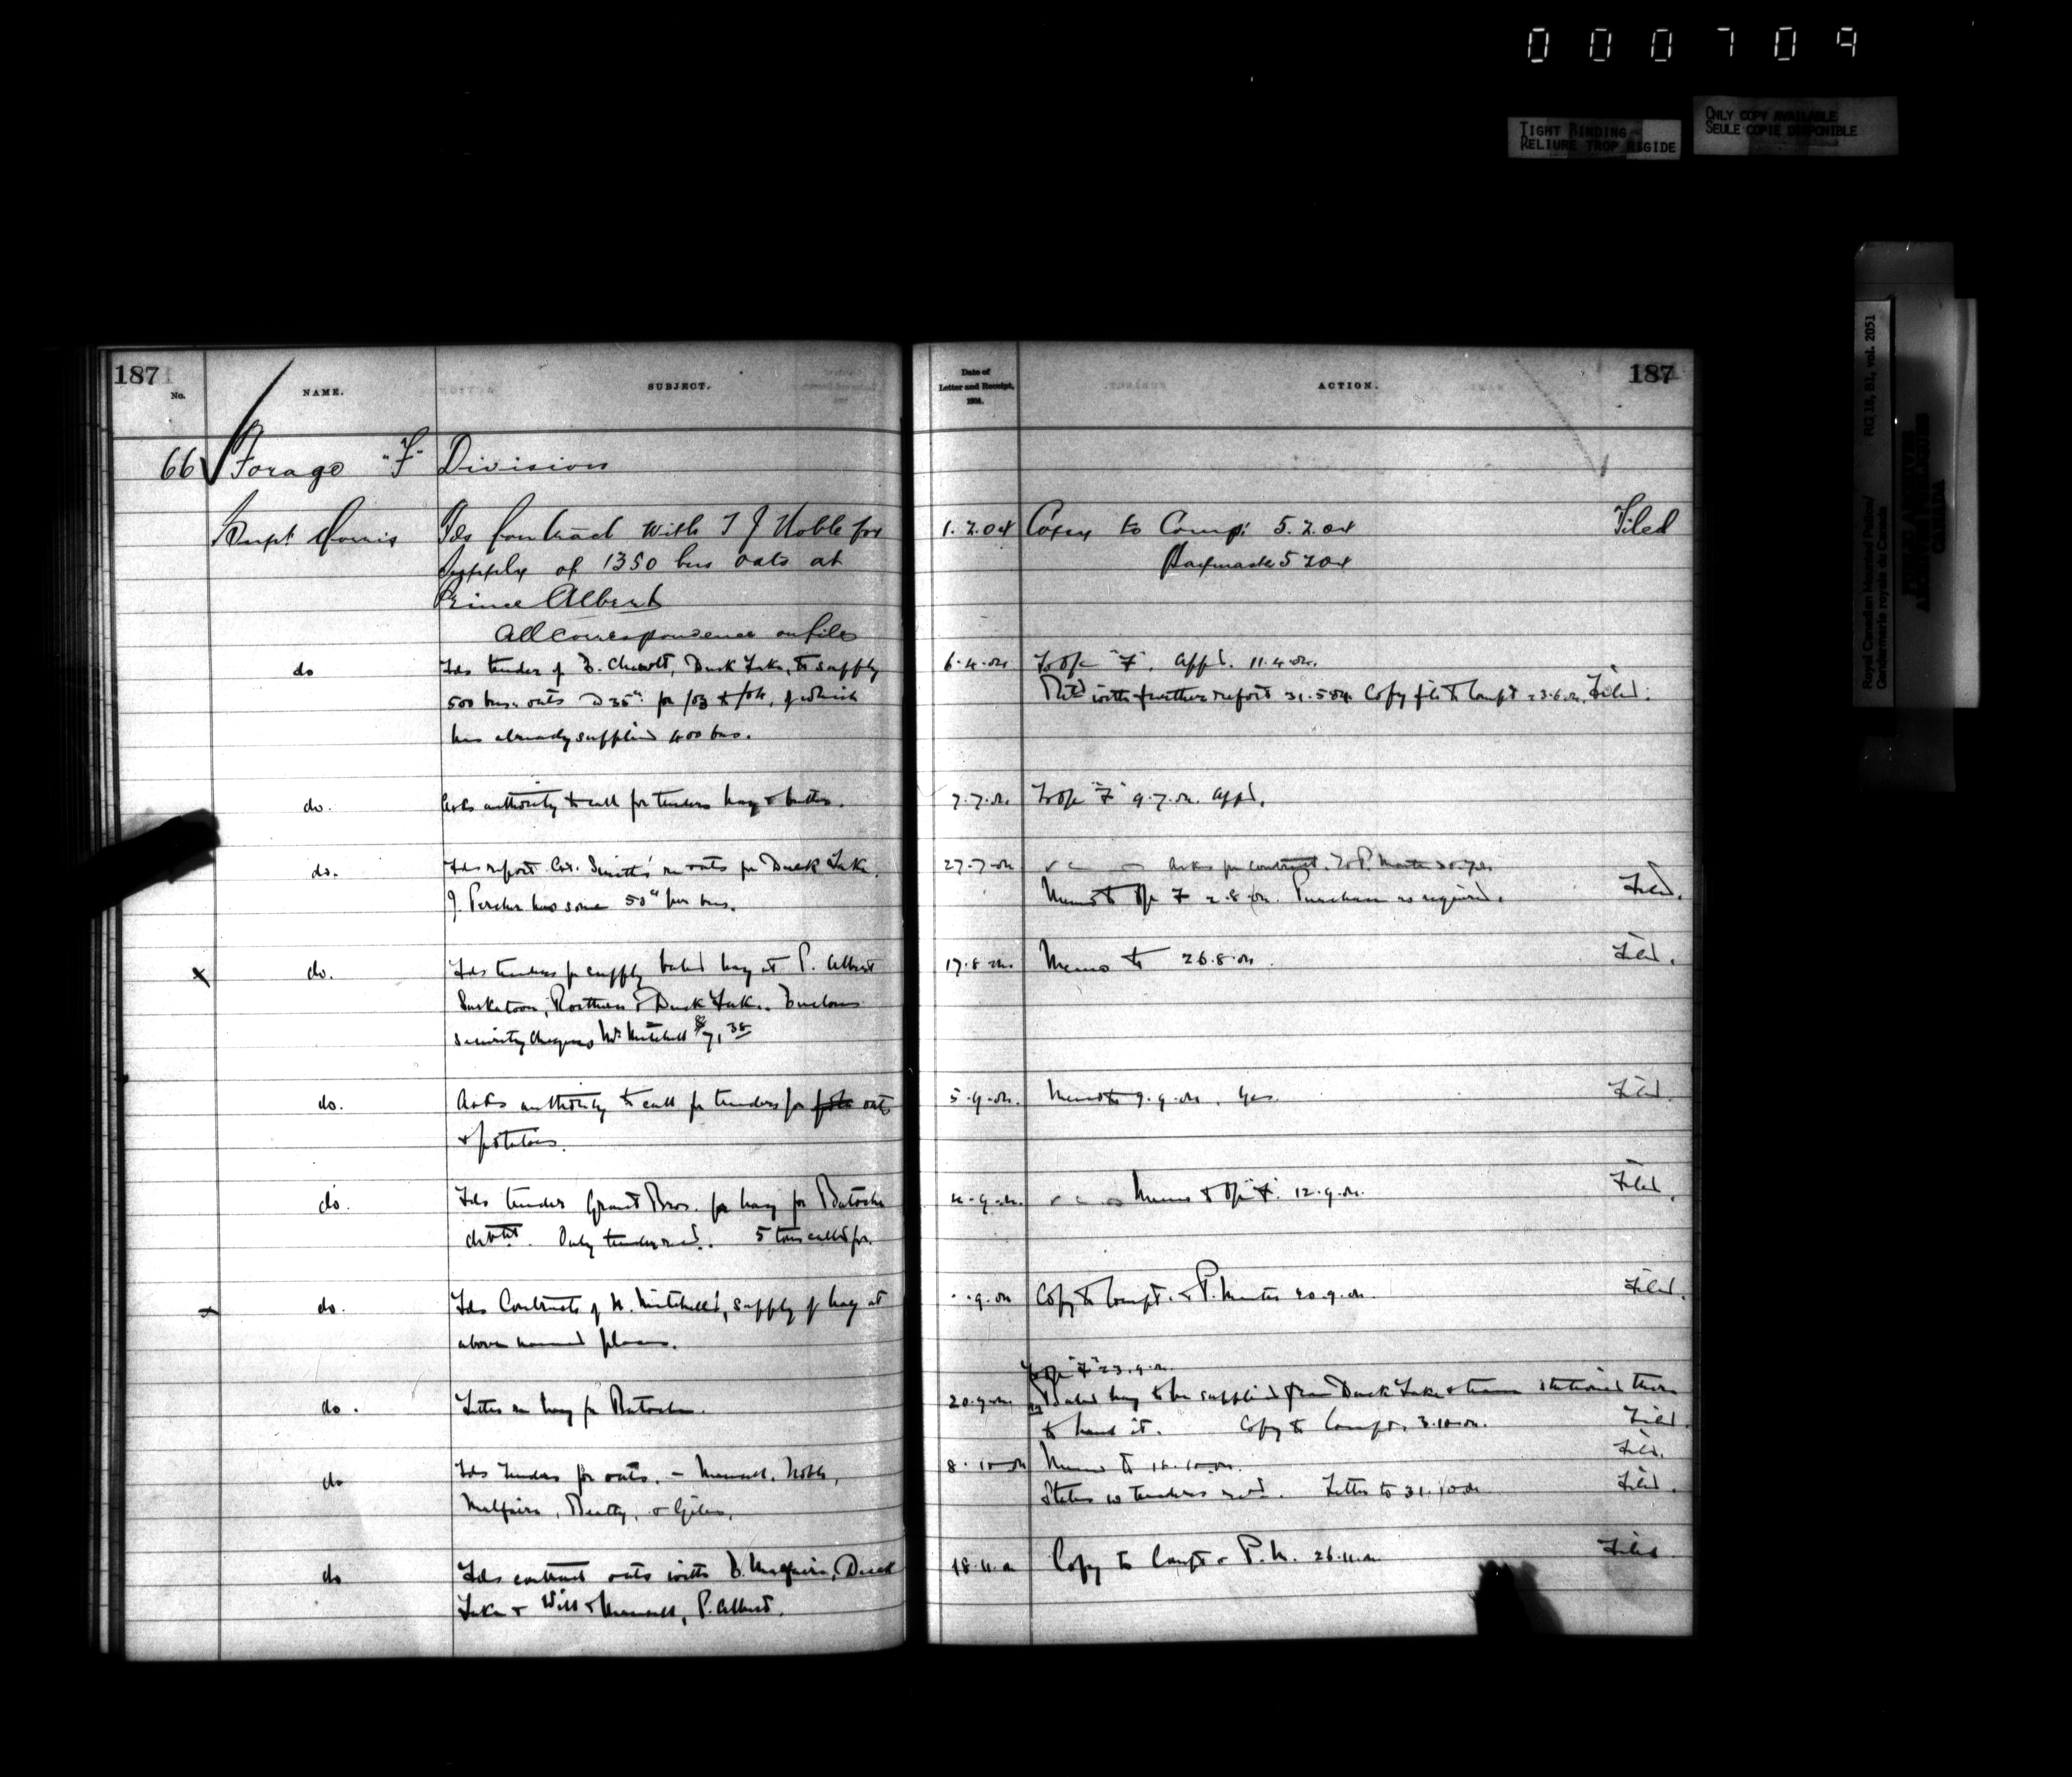 000709
TIGHT BINDING
RELIURE TROP RIGIDE
ONLY COPY AVAILABLE
SEULE COPIE DISPONIBLE
Royal Canadian Mounted Police/
Gendarmerie royale du Canada
RG 18, B1, vol. 2051
PUBLIC ARCHIVES
ARCHIVES PUBLIQUES
CANADA
187
No.
NAME.
SUBJECT.
66 Forage "F" Division
Supt Morris Fds Contract with T J Noble for
supply of 1350 bus oats at
Prince Albert
All correspondence on file
do Fds tender of Duck Lake, to supply
500 bus. oats @ 35c for /03 & /04, of which
has already supplied 400 bus.
do. Asks authority to call for tenders hay &
do. Fds report Cst. Smith's re oats for Duck Lake.
J. has some 50c per bus.
x do. Fds tenders for supply baled hay at P. Albert
Saskatoon, Rosthern & Duck Lake. Encloses
security cheques Mr. Mitchell
do. Asks authority to call for tenders for oats
& potatoes.
do. Fds tender Grant Bros. for hay for Batoche
detcht. Only tender recd. 5 tons called for.
x do. Fds Contracts of Mitchell, supply of hay at
above named places.
do. Letter re hay for Batoche.
do Fds tenders for oats. - Noble,
Beatty, & Giles.
do Fds contract oats with Duck
Lake & P. Albert.
187
Date of
Letter and Receipt,
1904.
ACTION.
1.2.04 Copy to Comp: 5.2.04 Filed
Paymaster 5 2 04
6.4.04 To Opr "F". Appd. 11.4.04.
Retd with further report 31.5.04. Copy file to Compt 23.6.04. Filed.
7.7.04 To Opr "F" 9.7.04. Appd.
27.7.04 Asks for contract.
Memo to Opr F 2.8.04. Purchase as required. Filed.
17.8.04. Memo to 26.8.04. Filed.
5.9.04. Memo to 9.9.04. Yes. Filed.
Memo to Opr "F". 12.9.04. Filed.
Copy to Compt. & P. Master 20.9.04. Filed.
To Opr "F" 23.9.04.
20.9.04. Baled hay to be supplied from Duck Lake & team stationed there
to haul it. Copy to Compt. 3.10.04. Filed.
8.10.04 Memo to Filed.
States no tenders recd. Letter to 31.10.04 Filed.
18.11.04 Copy to Compt & P.M. 26.11.04 Filed